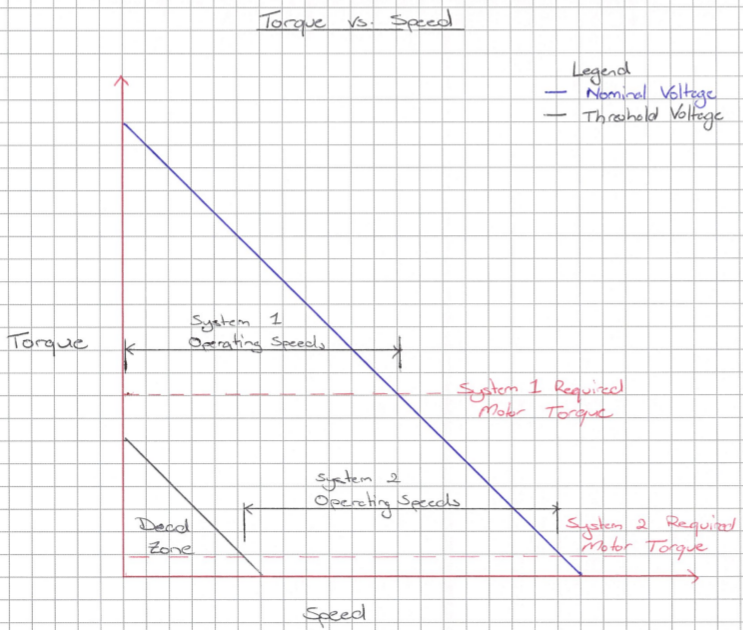 Torque vs. Speed
Legend
Nominal Voltage
Threshold Voltage
System 1
Operating Speeds
Torque
System 1 Required
Motor Torque
System 2
Operating Speeds
Dead
Zone
System 2 Required
Motor Torque
Speed